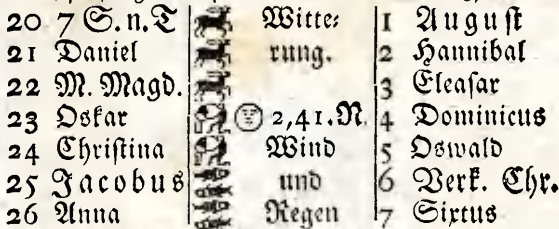 20 7 S. n. T Witte⸗ 1 Auguſt
21 Daniel rung. 2 Hannibal
22 M. Magd. 3 Eleaſar
23 Oskar 2,41. N. 4 Dominicus
24 Chriſtina Wind 5 Oswald
25 Jacobus und 6 Verk. Chr.
26 Anna Regen 7 Sixtus